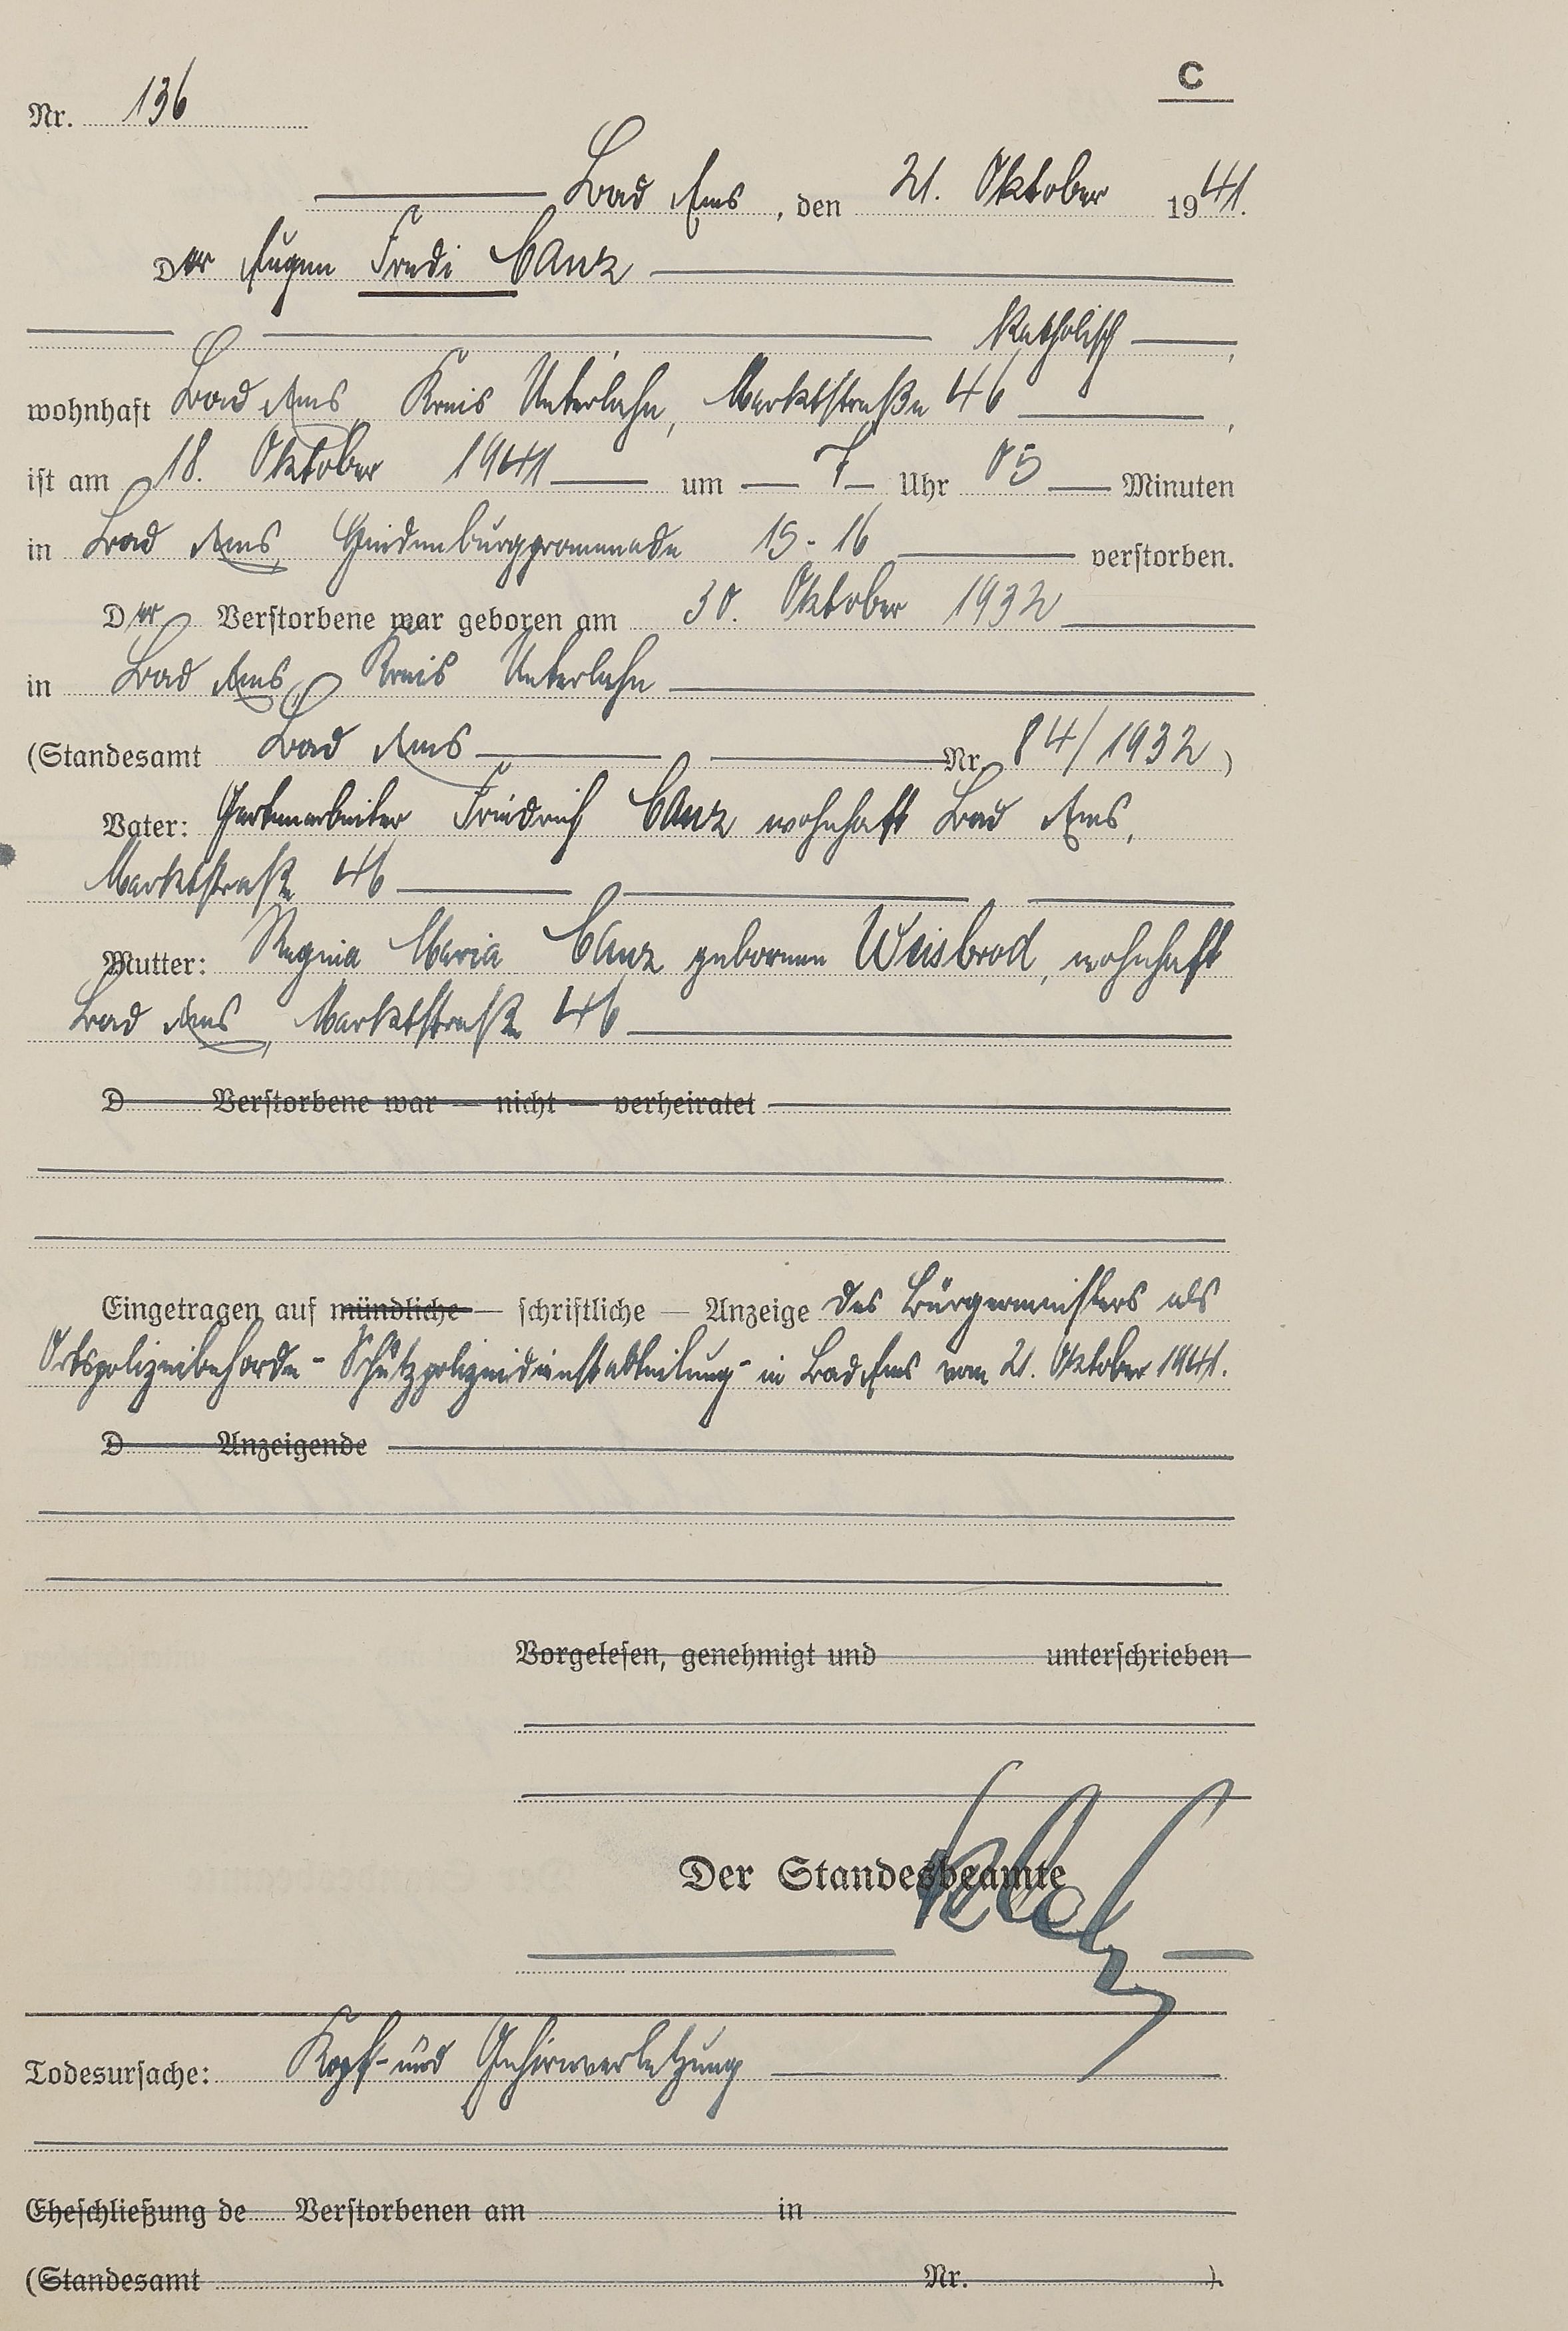 C
Nr. 136
Bad Ems, den 21. Oktober 1941.
Der Eugen Fredi Canz
katholisch,
wohnhaft Bad Ems, Kreis Unterlahn, Marktstraße 46,
ist am 18. Oktober 1941 um 7 Uhr 05 Minuten
in Bad Ems, Hindenburgpromenade 15-16 verstorben.
Der Verstorbene war geboren am 30. Oktober 1932
in Bad Ems, Kreis Unterlahn
(Standesamt Bad Ems Nr. 84/1932)
Vater: Gartenarbeiter Friedrich Canz wohnhaft Bad Ems,
Marktstraße 46
Mutter: Regina Maria Canz geborenen Weisbrod, wohnhaft
Bad Ems, Marktstraße 46
D Verstorbene war — nicht — verheiratet
Eingetragen auf mündliche — schriftliche — Anzeige des Bürgermeisters als
Ortspolizeibehörde - Schutzpolizeidienstabteilung - in Bad Ems vom 21. Oktober 1941.
D Anzeigende
Vorgelesen, genehmigt und unterschrieben
Der Standesbeamte
Todesursache: Kopf- und Gehirnverletzung
Eheschließung de Verstorbenen am in
(Standesamt Nr. )